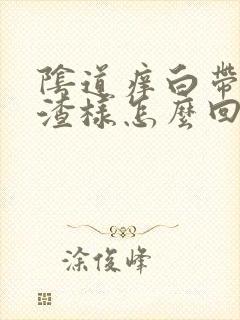 陰道痒白帶
渣樣怎麼回
涂俊峰